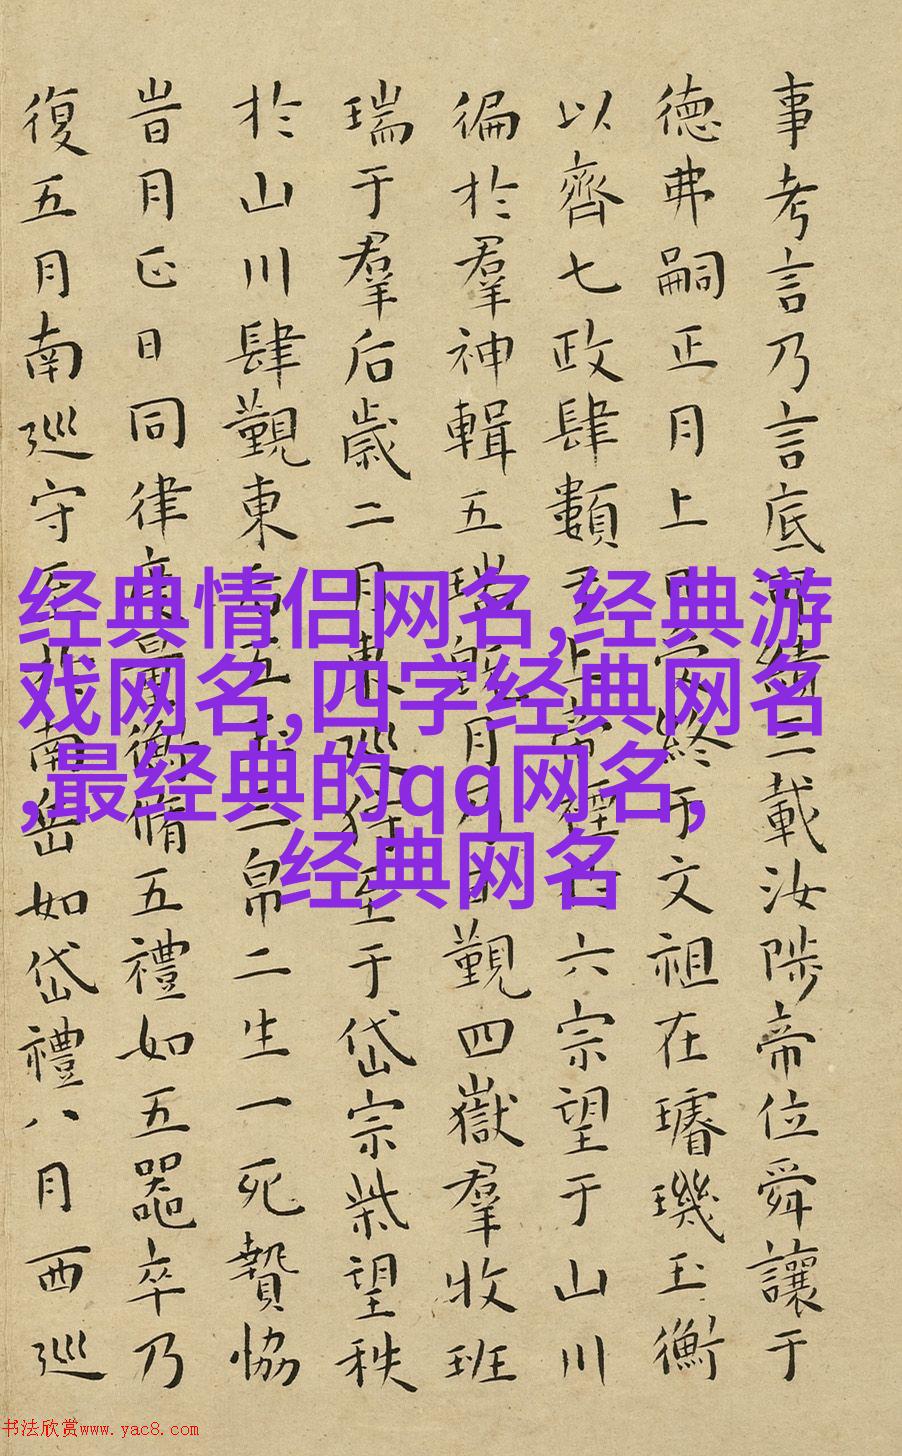 事考言乃言底績三載汝陟帝位舜讓于
德弗嗣正月上日受終于文祖在璿璣玉衡
以齊七政肆類于上帝禋六宗望于山川
徧於羣神輯五瑞既月乃日覲四嶽羣牧班
瑞于羣后歲二月東巡狩至于岱宗柴望秩
於山川肆覲東后五玉三帛二生一死贄協
旹月正日同律度量衡脩五禮如五器卒乃
復五月南巡守至南岳如岱禮八月西巡
经典情侣网名,经典游
戏网名,四字经典网名
,最经典的qq网名,
经典网名
书法欣赏www.yac8.com